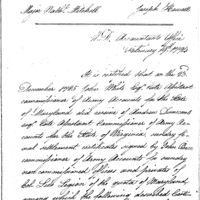 Major Nathl. Mitchell    Joseph Howell
Accountants Office
February 1795
It is certified that on the 23
December 1785 John White Esqr. late Assistant
commissioner of Army Accounts for the State
of Maryland and service of Andrew Dunscomb
Esqr. late Assistant Commissioner of Army Acc-
ounts for the State of Virginia,
final settlement certificates signed by John Pierce
commissioner of Army Accounts for sundry
non commissioned officers and privates of
Cols. Legion of the quota of Maryland,
among which the following described Certi-